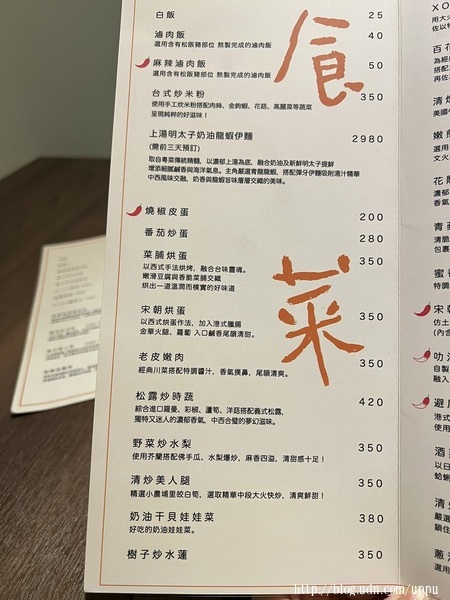 食
白飯 25
滷肉飯 40
選用含有松阪豬部位 熬製完成的滷肉飯
麻辣滷肉飯 50
選用含有松阪豬部位 熬製完成的滷肉飯
台式炒米粉 350
使用手工炊米粉搭配肉絲、金鉤蝦、花菇、高麗菜等蔬菜
呈現純粹的好滋味！
上湯明太子奶油龍蝦伊麵 2980
(需前三天預訂)
取自粵菜傳統精髓，以濃郁上湯為底，融合奶油及新鮮明太子提鮮
增添細膩鹹香與海洋氣息。主角嚴選青龍龍蝦，搭配彈牙伊麵吸附湯汁精華
中西風味交融，奶香與龍蝦旨味層層交織的美味。
菜
燒椒皮蛋 200
番茄炒蛋 280
菜脯烘蛋 350
以西式手法烘烤，融合台味靈魂。
嫩滑豆腐與香脆菜脯交織
烘出一道溫潤而樸實的好味道
宋朝烘蛋 350
以西式烘蛋作法，加入港式臘腸
金華火腿、蘿蔔 入口鹹香尾韻清甜。
老皮嫩肉 350
經典川菜搭配特調醬汁，香氣撲鼻，尾韻清爽。
松露炒時蔬 420
綜合進口羅曼、彩椒、蘆筍、洋菇搭配義式松露，
獨特又迷人的濃郁香氣，中西合璧的夢幻滋味。
野菜炒水梨 350
使用芥蘭搭配佛手瓜、水梨爆炒，麻香四溢，清甜感十足！
清炒美人腿 350
精選小農埔里筊白筍，選取精華中段大火快炒，清爽鮮甜！
奶油干貝娃娃菜 380
好吃的奶油娃娃菜。
樹子炒水蓮 350
XO
用大
佐以特
百花
為經典
搭配
若為
清
美國
嫩
選用
文火
花
香氣
青
清脆
包裹
蜜
特調
宋
仿土
(內含
叻
自製
融入
避
港式
使用
酒
以日
蛤蜊
清
嚴選
鎖住
蔥
選用
http://blog.udn.com/uppu